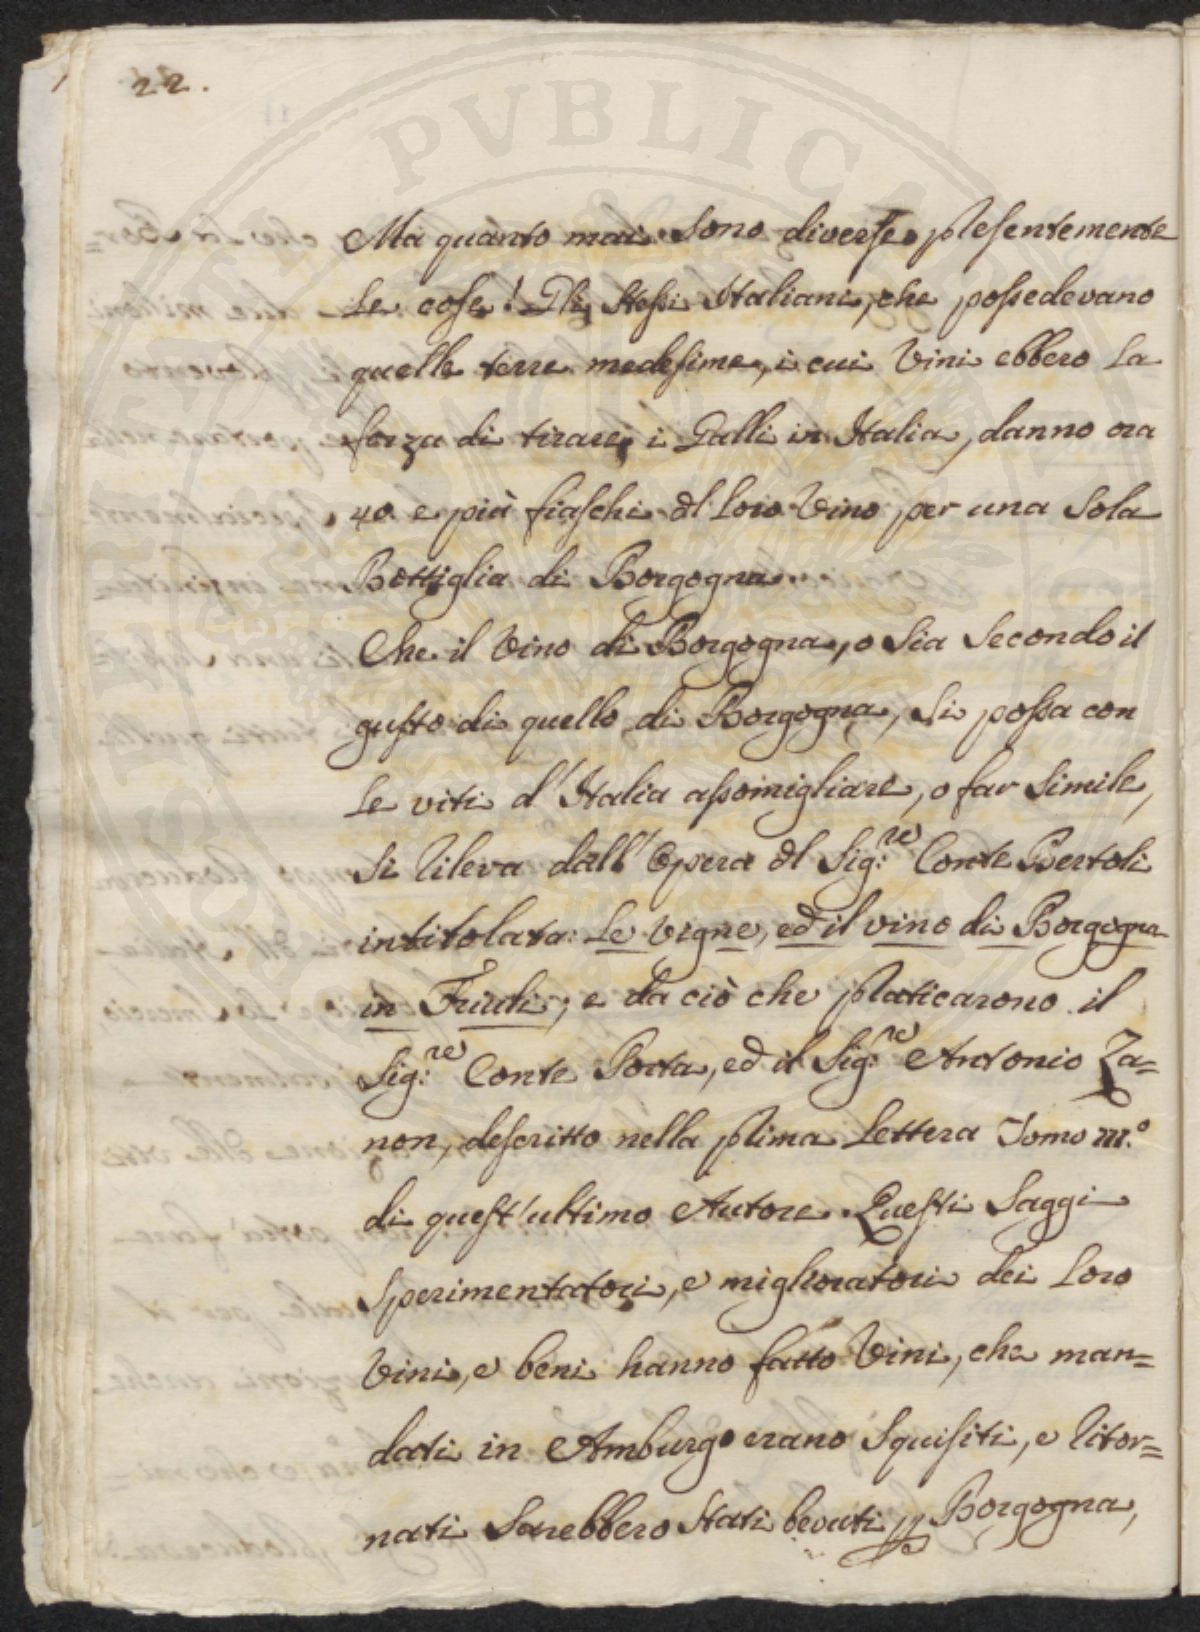 22.
Ma quanto mai sono diverse presentemente
le cose! Gli stessi Italiani, che possedevano
quelle terre medesime, i cui Vini ebbero la
forza di tirare i Galli in Italia, danno ora
40. e più fiaschi dl loro Vino per una sola
Bottiglia di Borgogna.
Che il Vino di Borgogna, o sia secondo il
gusto di quello di Borgogna, si possa con
le viti d'Italia assomigliare, o far simile,
si rileva dall'Opera dl Sig:re Conte Bertoli
intitolata: Le Vigne, ed il vino di Borgogna
in Friuli; e da ciò che praticarono il
Sig:re Conte Porta, ed il Sig:re Antonio Za=
non, descritto nella prima Lettera Tomo III.o
di quest'ultimo Autore. Questi Saggi
sperimentatori, e miglioratori dei loro
Vini, e beni hanno fatto Vini, che man=
dati in Amburgo erano squisiti, e ritor=
nati sarebbero stati bevuti p Borgogna,
PVBLICAE